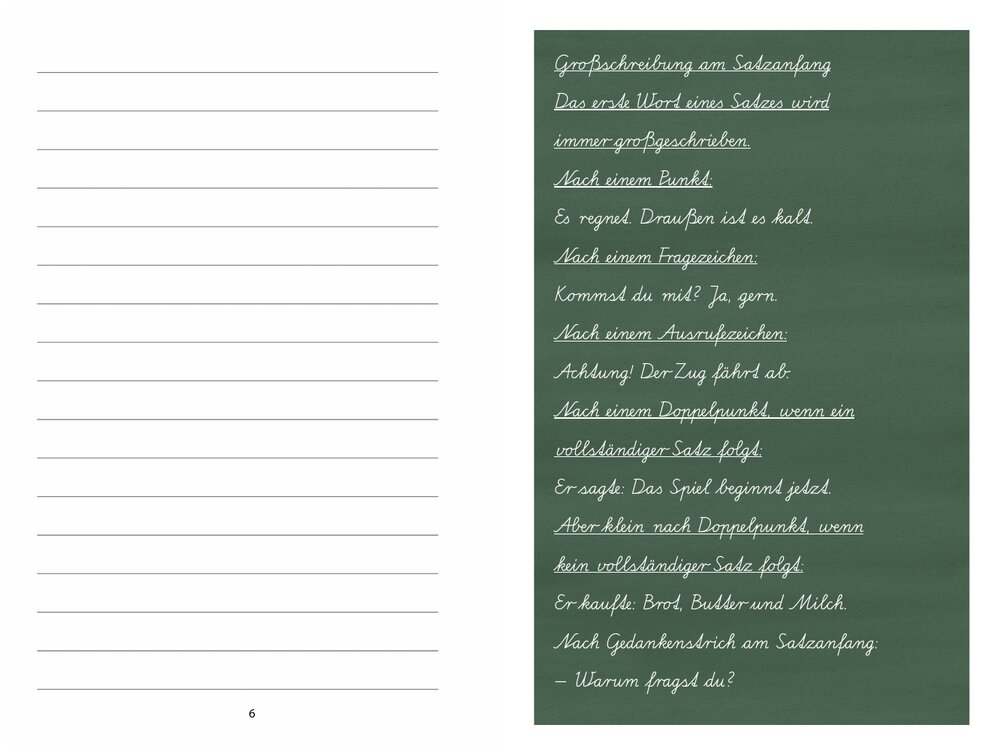 6
Großschreibung am Satzanfang
Das erste Wort eines Satzes wird
immer großgeschrieben.
Nach einem Punkt:
Es regnet. Draußen ist es kalt.
Nach einem Fragezeichen:
Kommst du mit? Ja, gern.
Nach einem Ausrufezeichen:
Achtung! Der Zug fährt ab.
Nach einem Doppelpunkt, wenn ein
vollständiger Satz folgt:
Er sagte: Das Spiel beginnt jetzt.
Aber klein nach Doppelpunkt, wenn
kein vollständiger Satz folgt:
Er kaufte: Brot, Butter und Milch.
Nach Gedankenstrich am Satzanfang:
– Warum fragst du?